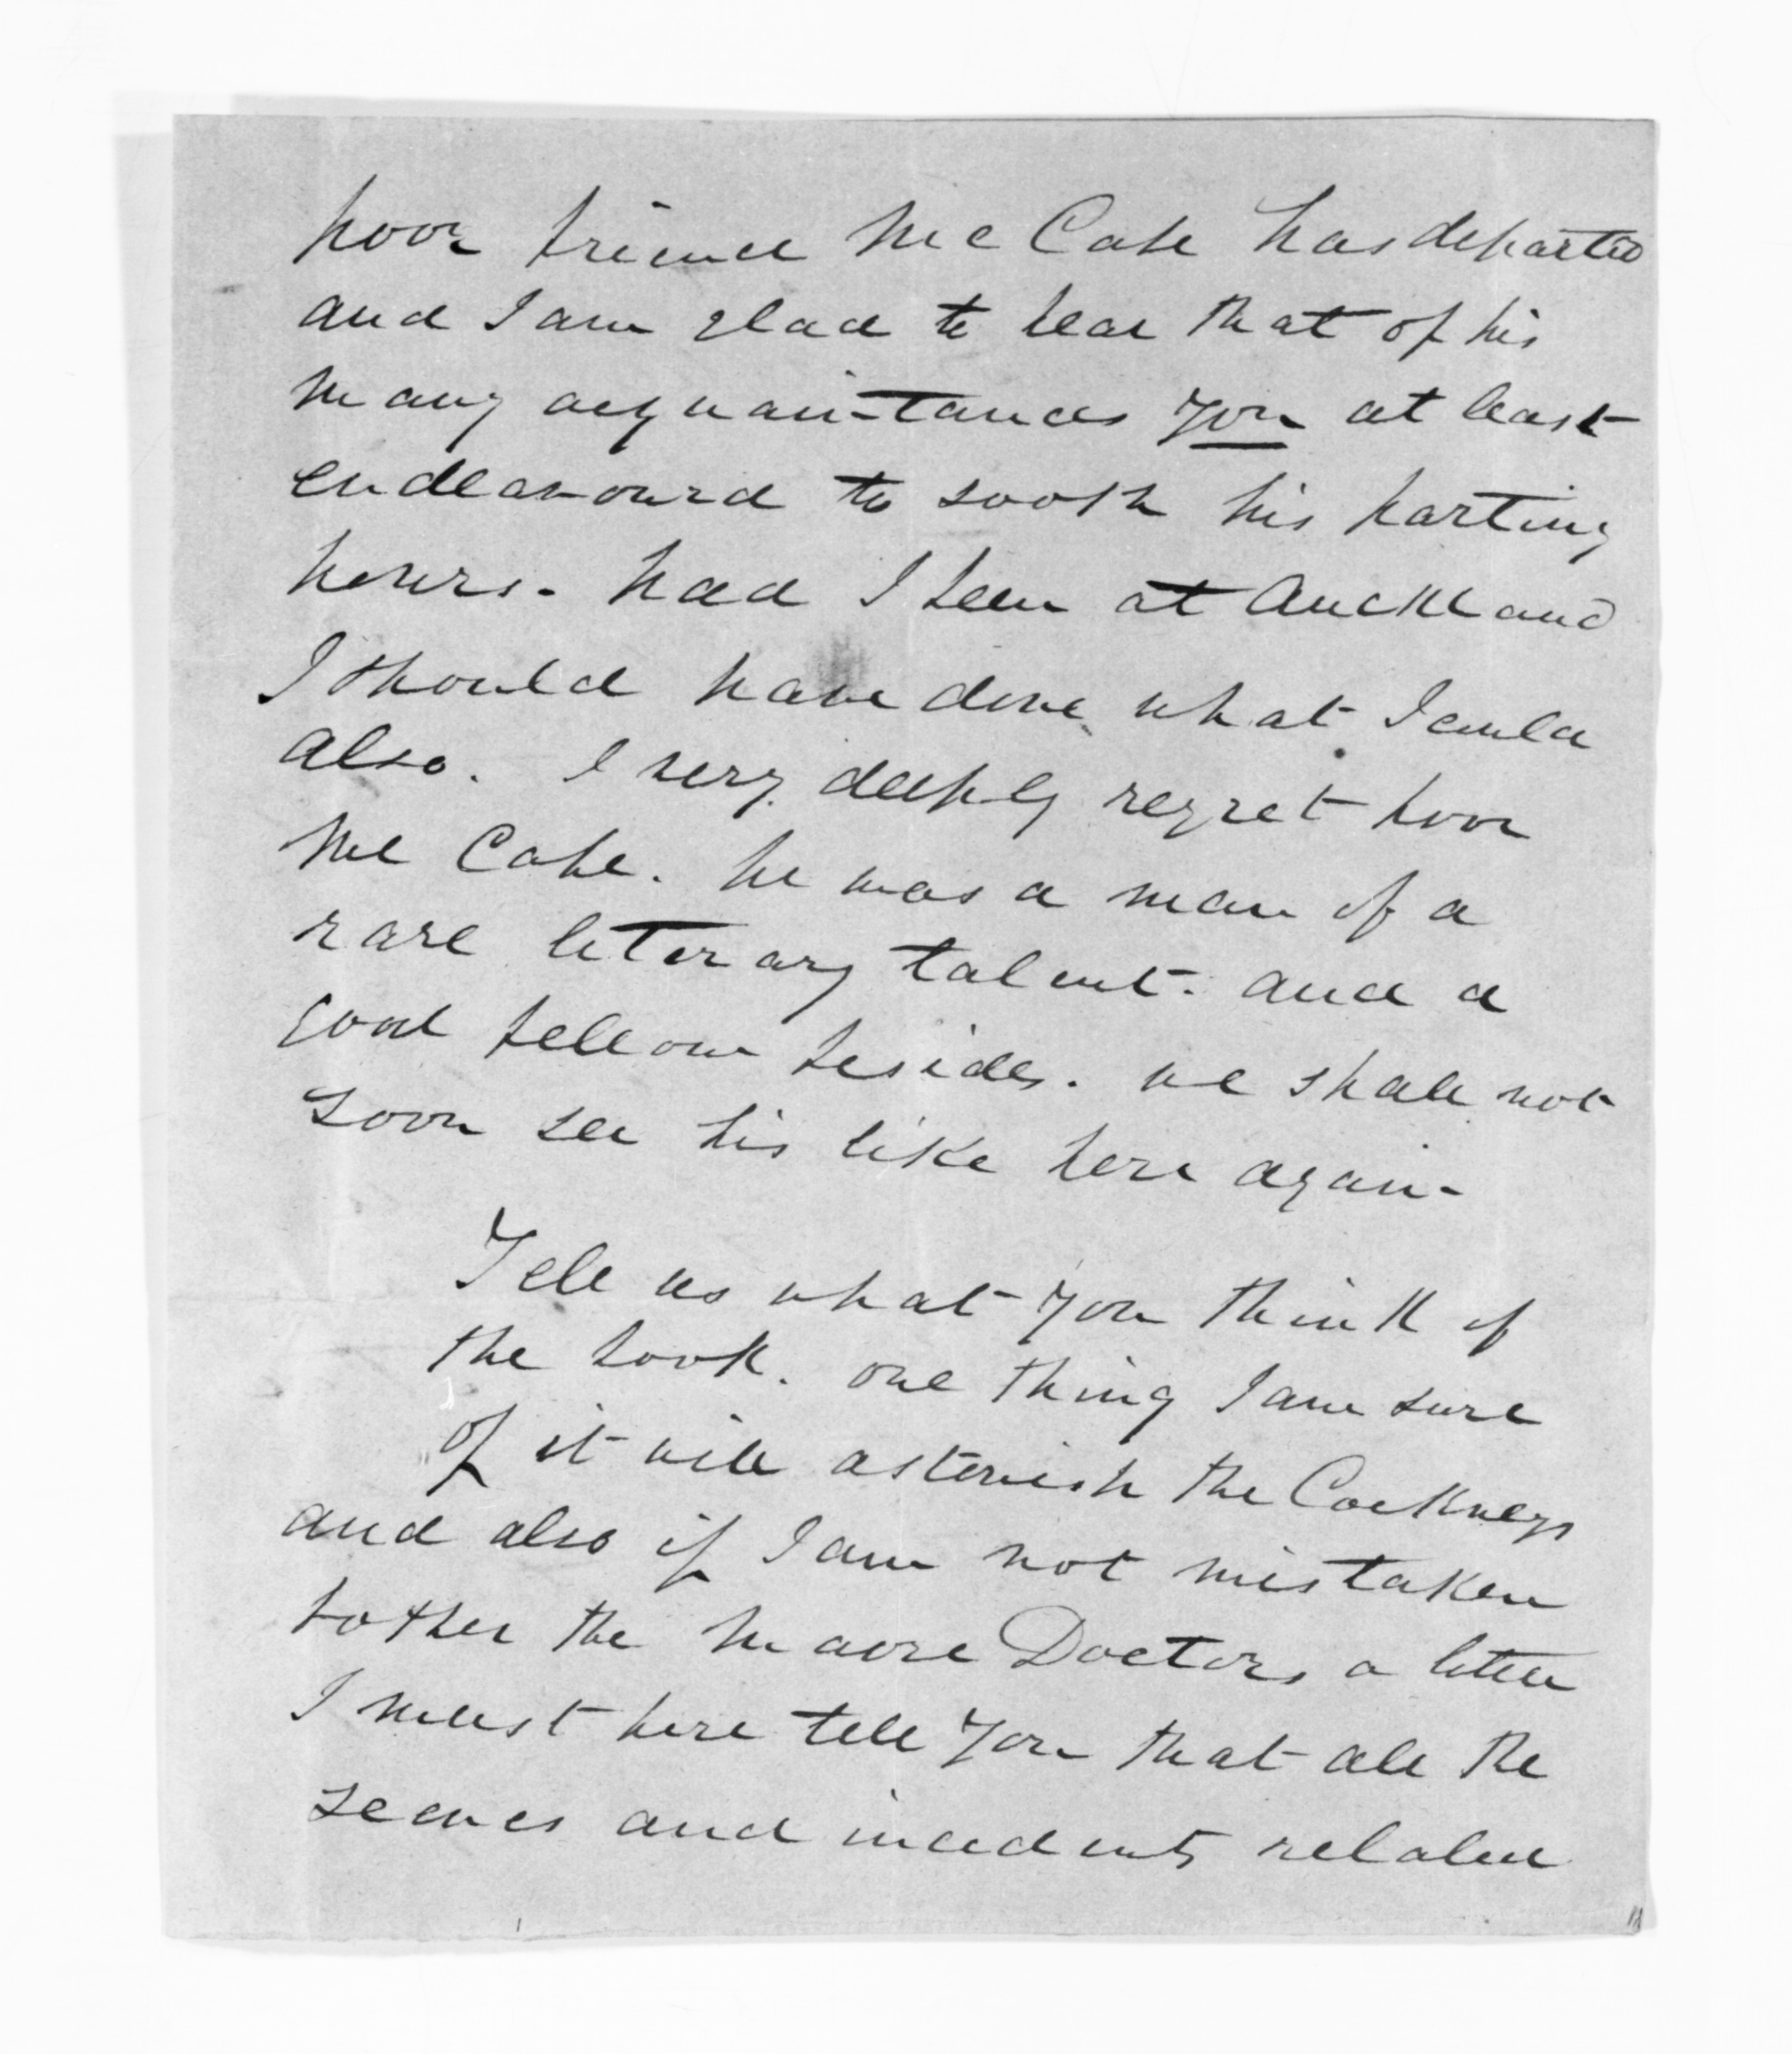 poor friend McCabe has departed
and I am glad to hear that of his
many acquaintances you at least
endeavourd to sooth his parting
hours. had I been at Auckland
I should have done what I could
also. I very deeply regret poor
McCabe. he was a man of a
rare literary talent. and a
good fellow besides. we shall not
soon see his like here again-
Tell us what you think of
the book. one thing I am sure
of it will astonish the Cockneys
and also if I am not mistaken
bother the Maore Doctors a little
I must here tell you that all the
scenes and incidents related